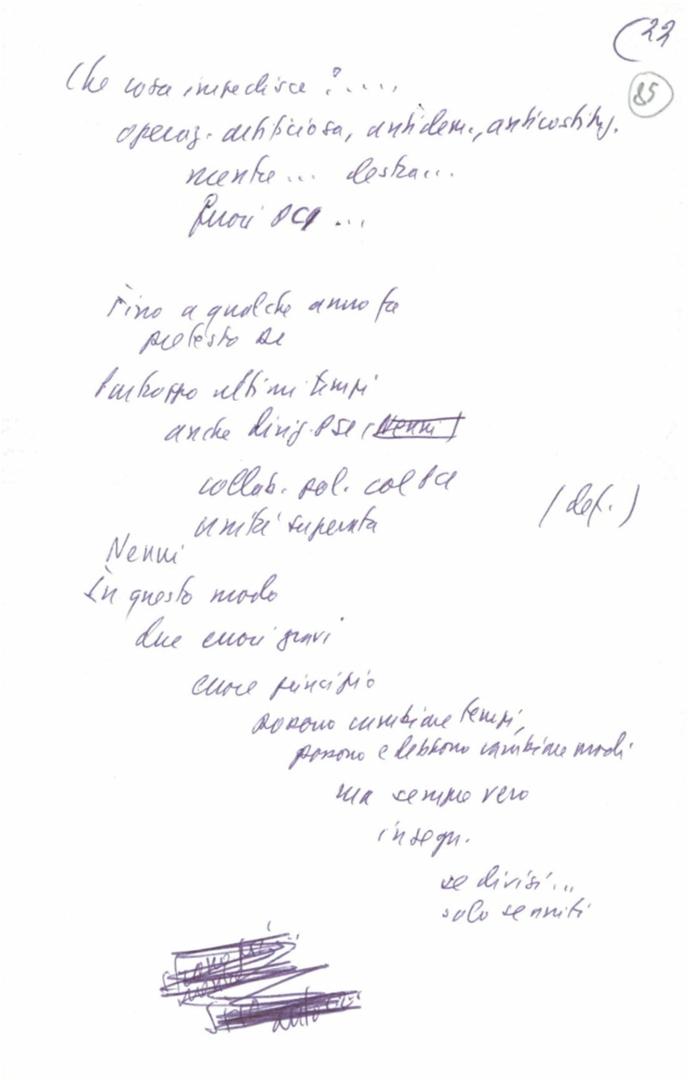 22
85
Che cosa impedisce?....
operaz. artificiosa, antidem., anticostituz.
mentre... destra...
fuori PCI...
Fino a qualche anno fa
pretesto se
Purtroppo ultimi tempi
anche dirig. PSI (Nenni)
collab. pol. col PCI
(def.)
unità superata
Nenni
In questo modo
due errori gravi
errore principio
possono cambiare tempi,
possono e debbono cambiare modi
ma sempre vero
insegn.
se divisi...
solo se uniti